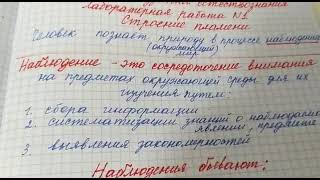 естествознания
Лабораторная работа №1
Строение пламени
Человек познаёт природу в процессе наблюдения
(окружающий
мир)
Наблюдение - это сосредоточение внимания
на предметах окружающей среды для их
изучения путём:
1. сбора информации
2. систематизации знаний о наблюдаемо
явлении, предмете
3. выявления закономерностей
Наблюдения бывают: